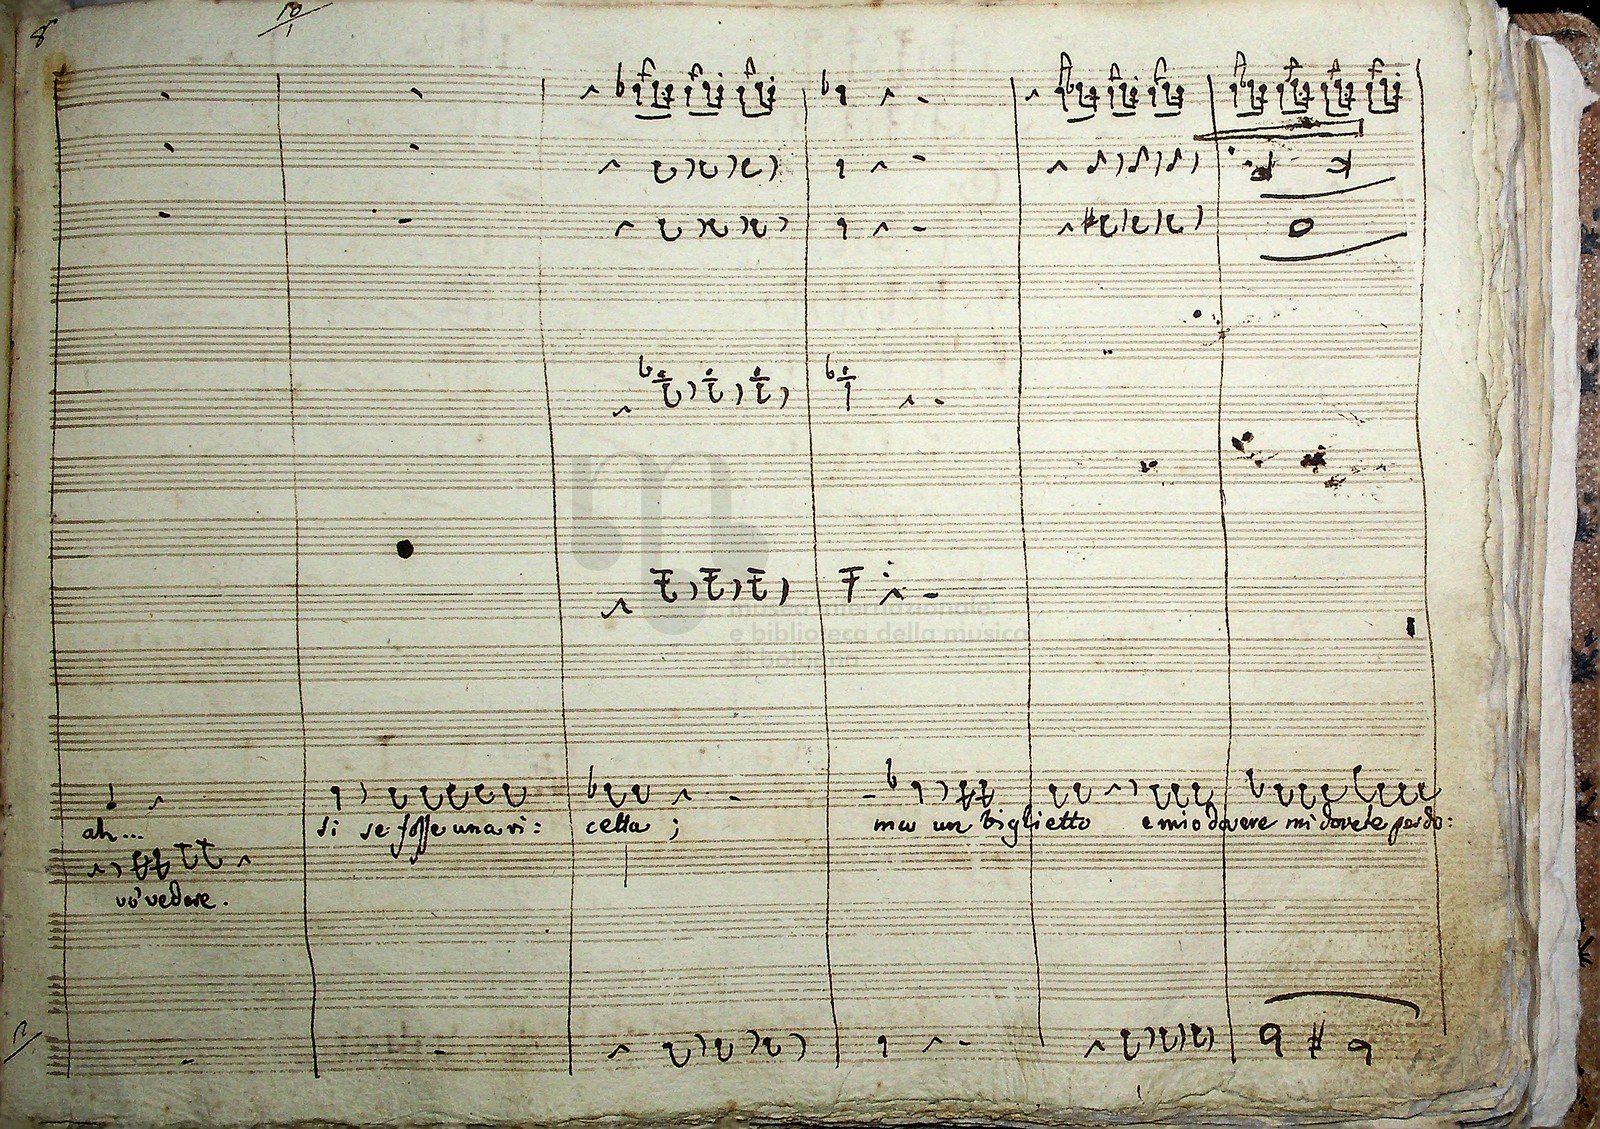 8
10/1
museo internazionale
e biblioteca della musica
di bologna
ah... si se fosse una ri: cetta; ma un biglietto e mio dovere mi dovete perdo:
vò vedere.
12